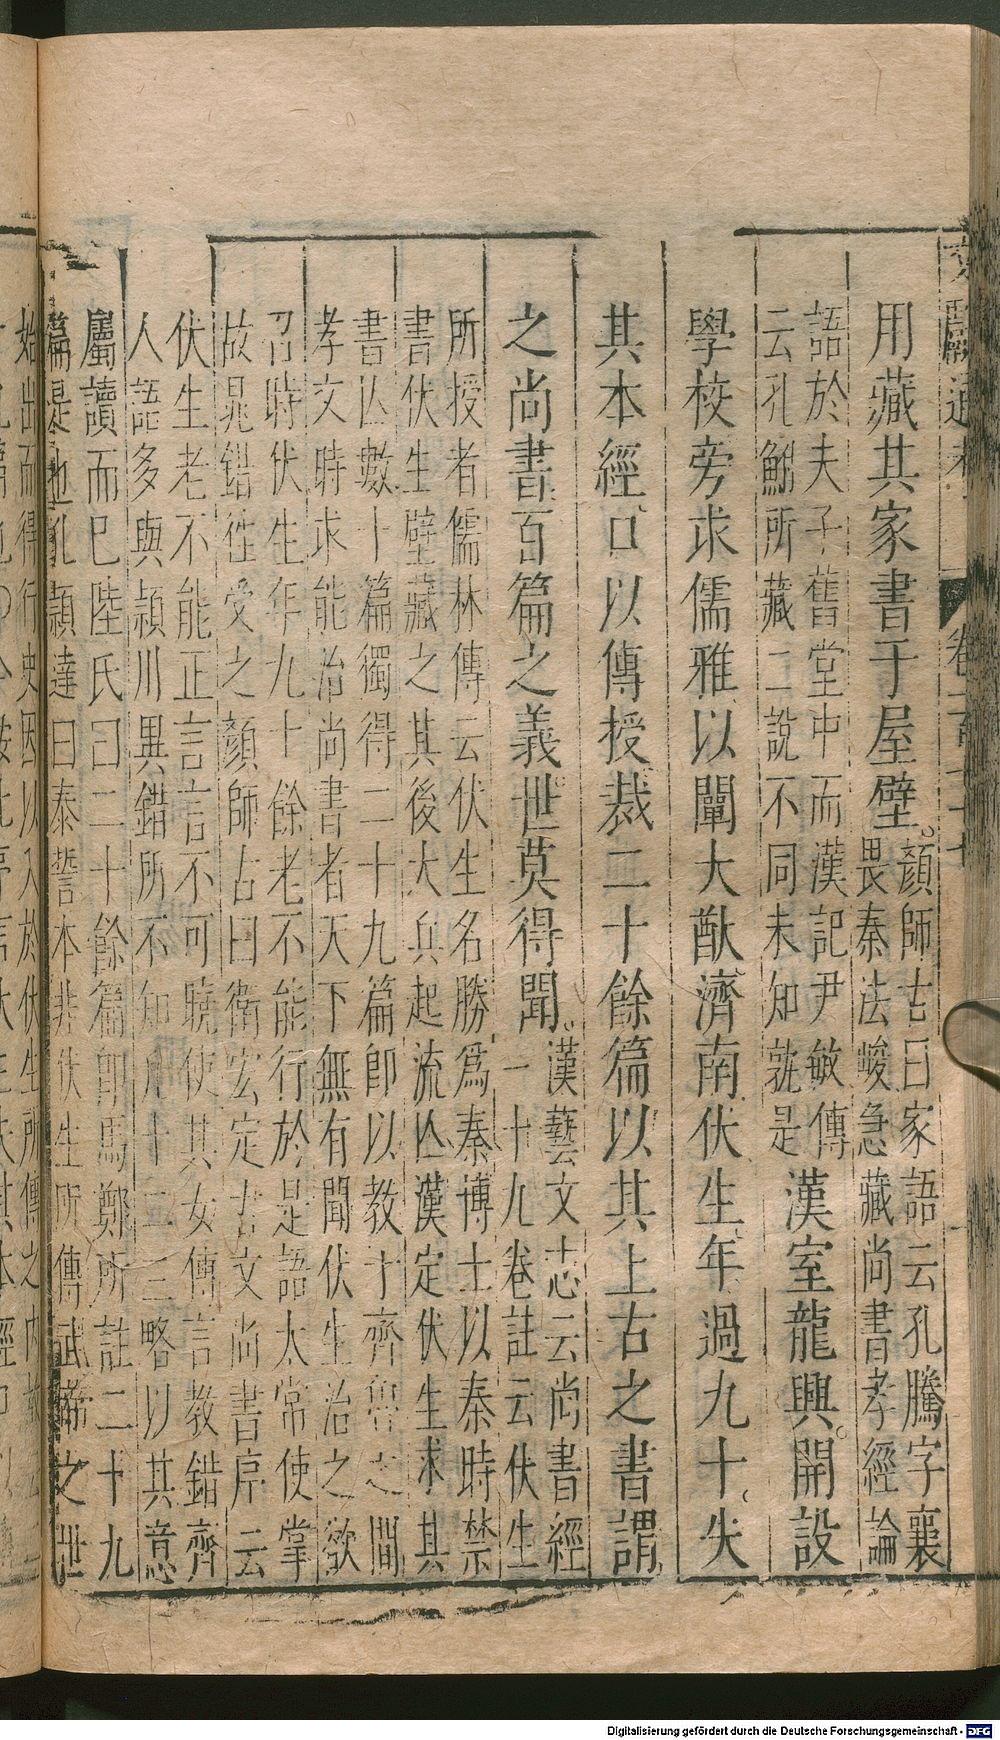 文獻通考 卷一百七十七
用藏其家書于屋壁。顏師古曰家語云孔騰字襄
畏秦法峻急藏尚書孝經論
語於夫子舊堂中而漢記尹敏傳
云孔鮒所藏二說不同未知孰是漢室龍興。開設
學校旁求儒雅以闡大猷濟南伏生年過九十失
其本經口以傳授裁二十餘篇以其上古之書謂
之尚書百篇之義世莫得聞。漢藝文志云尚書經
二十九卷註云伏生
所授者儒林傳云伏生名勝爲秦博士以秦時禁
書伏生壁藏之其後大兵起流亾漢定伏生求其
書亾數十篇獨得二十九篇即以教于齊魯之間
孝文時求能治尚書者天下無有聞伏生治之欲
召時伏生年九十餘老不能行於是語太常使掌
故晁錯徃受之顏師古曰衛宏定古文尚書序云
伏生老不能正言言不可曉使其女傳言教錯齊
人語多與潁川異錯所不知凡十二三略以其意
屬讀而已陸氏曰二十餘篇即馬鄭所註二十九
篇是也孔穎達曰泰誓本非伏生所傳武帝之世
始出而得行史因以入於伏生所傳之内故
Digitalisierung gefördert durch die Deutsche Forschungsgemeinschaft - DFG